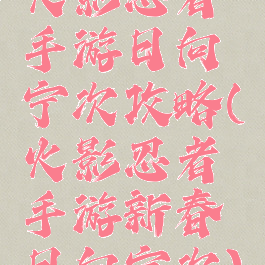 火影忍者
手游日向
宁次攻略(
火影忍者
手游新春
日向宁次)